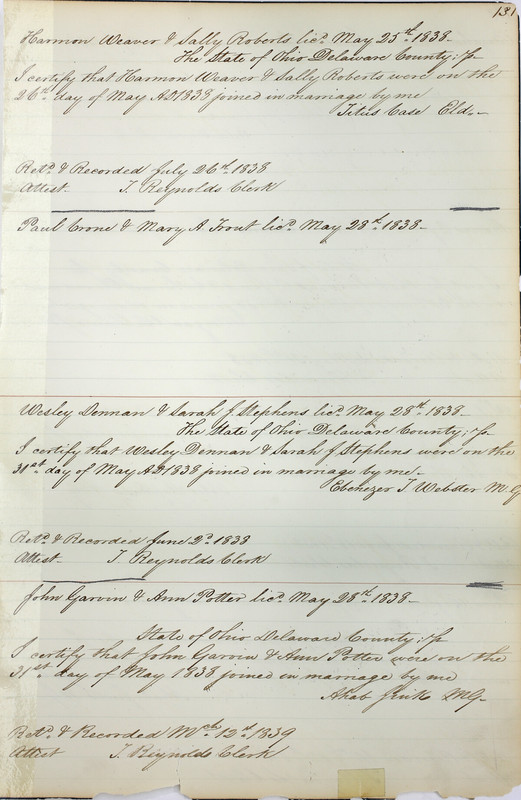 131
Harmon Weaver & Sally Roberts licd. May 25th. 1838-
The State of Ohio Delaware County; Ss
I certify that Harmon Weaver & Sally Roberts were on the
26th. day of May AD 1838 joined in marriage by me
Titus Case Eld.-
Retd. & Recorded July 26th. 1838
Attest. T. Reynolds Clerk
Paul Crone & Mary A Trout licd. May 28th. 1838-
Wesley Dennan & Sarah J Stephens licd. May 28th. 1838-
The State of Ohio Delaware County; Ss
I certify that Wesley Dennan & Sarah J Stephens were on the
31st. day of May AD 1838 joined in marriage by me-
Ebenezer T Webster M.G
Retd. & Recorded June 2d. 1838
Attest- T. Reynolds Clerk
John Garvin & Ann Potter licd. May 28th. 1838-
State of Ohio Delaware County; Ss
I certify that John Garvin & Ann Potter were on the
31st. day of May 1838 joined in marriage by me
Ahab MG-
Retd. & Recorded Mch 12th. 1839
Attest T. Reynolds Clerk